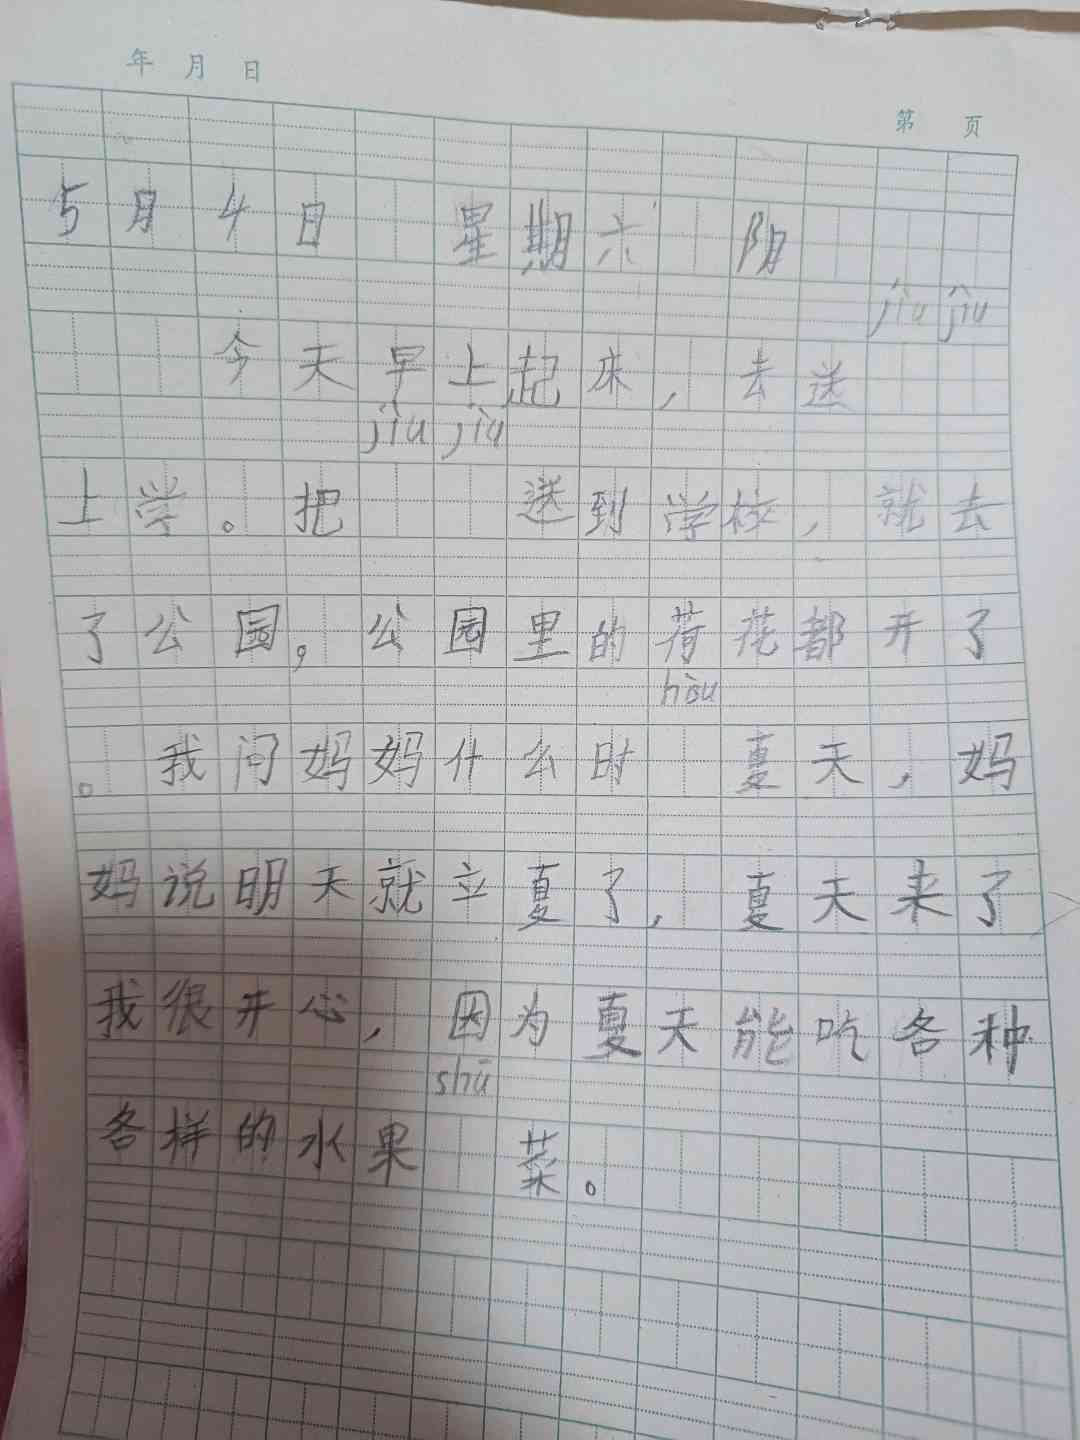 年 月 日
第 页
5月4日 星期六 阴
jìu jìu
今天早上起来,去送
jìu jìu
上学。把 送到学校,就去
了公园,公园里的荷花都开了
hòu
。我问妈妈什么时 夏天,妈
妈说明天就立夏了,夏天来了
我很开心,因为夏天能吃各种
shū
各样的水果 菜。